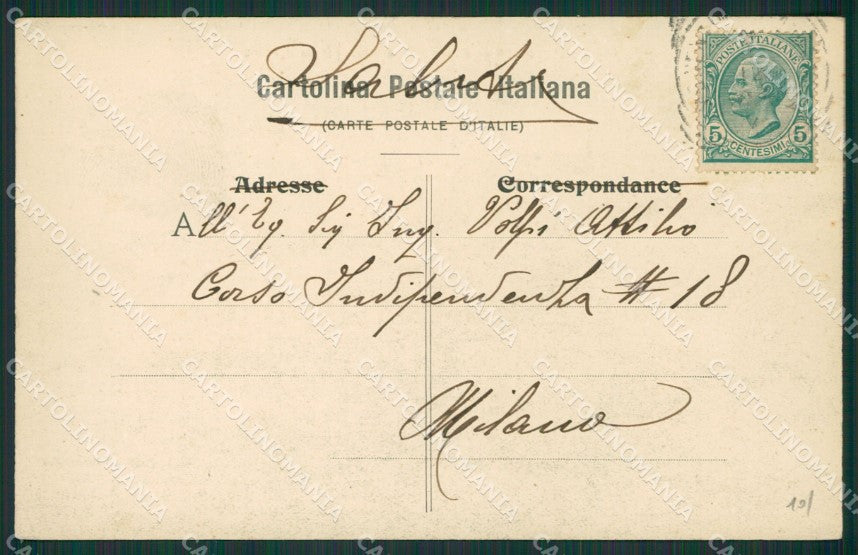 Saluti
Cartolina Postale Italiana
(CARTE POSTALE D'ITALIE)
POSTE ITALIANE
5 5
CENTESIMI
Adresse
Correspondance
All' Eg. Sig Ing. Volpi Attilio
Corso Indipendenza # 18
Milano
19/
CARTOLINOMANIA